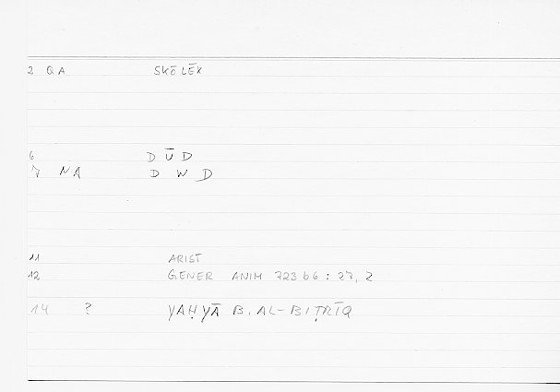 2 QA SKŌLĒX
6 DŪD
7 NA D W D
11 ARIST
12 GENER ANIM 723 b6 : 27, 2
14 ? YAḤYĀ B. AL-BIṬRĪQ